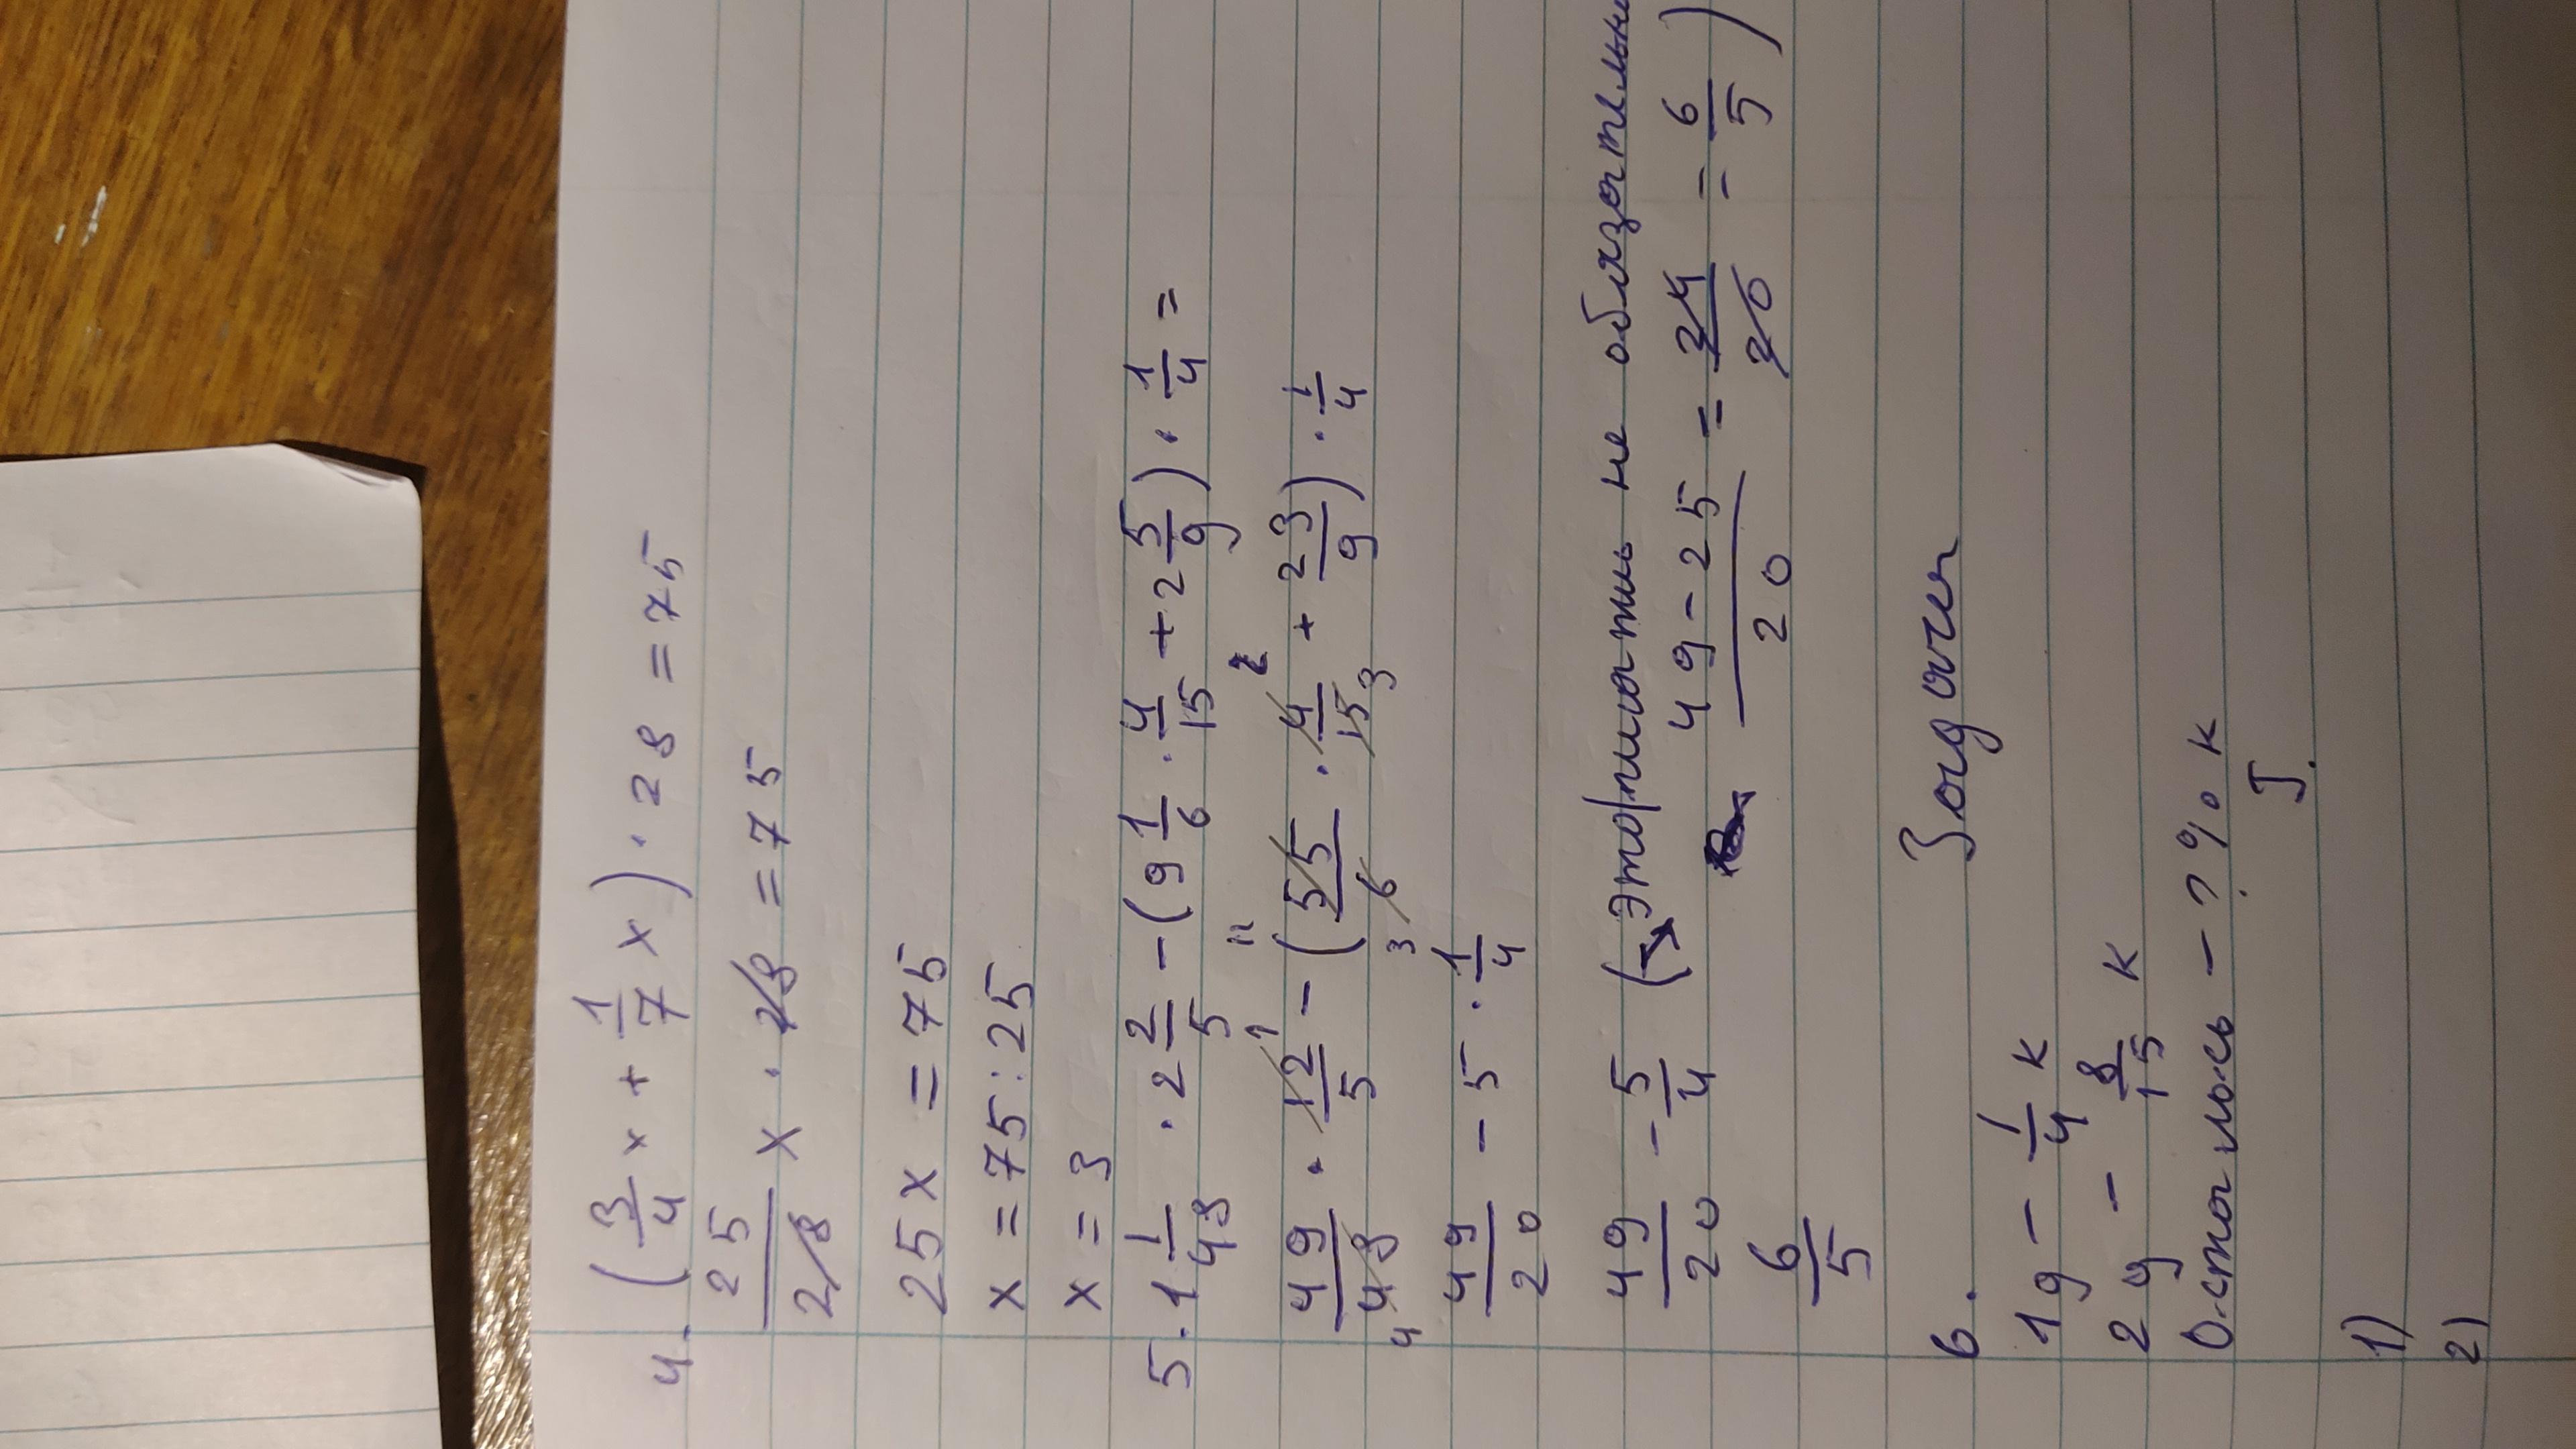 4. (3/4 x + 1/7 x) · 28 = 75
25/28 x · 28 = 75
25x = 75
x = 75 : 25
x = 3
5. 1 1/48 · 2 2/5 - (9 1/6 · 4/15 + 2 5/9) · 1/4 =
49/48 4 · 12/5 1 - (55/6 11 3 · 4/15 2 3 + 23/9) · 1/4
49/20 - 5 · 1/4
49/20 - 5/4 (этопис́ать не обязательно
6/5 49-25/20 = 24/20 = 6/5 )
6. Задача
1g - 1/4 k
2g - 8/15 k
Осталось - ? % k
J.
1)
2)